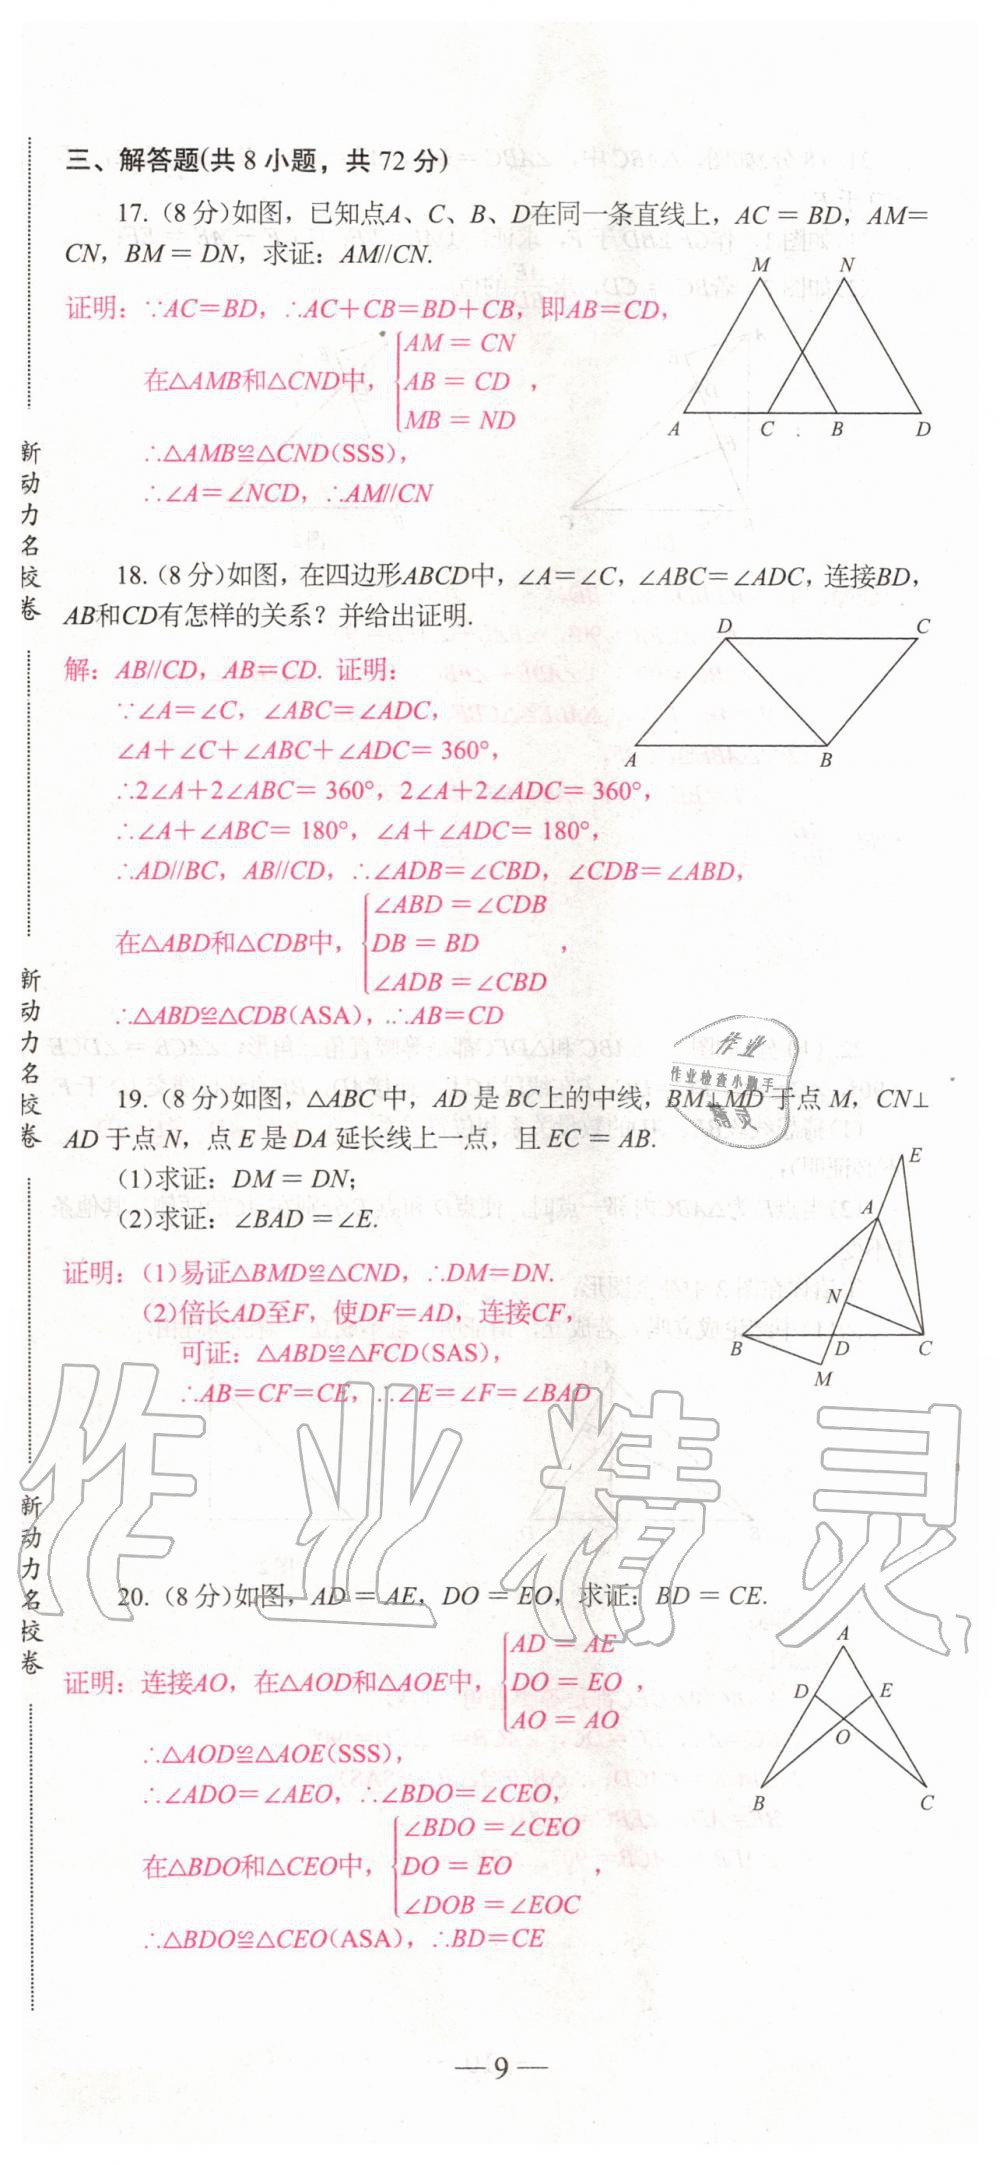 三、解答题(共 8 小题，共 72 分)
17. (8 分)如图，已知点A、C、B、D在同一条直线上，AC = BD，AM=
CN，BM = DN，求证：AM//CN.
证明：∵AC=BD，∴AC+CB=BD+CB，即AB=CD，
在△AMB和△CND中，{AM = CN
AB = CD ，
MB = ND
∴△AMB≌△CND(SSS)，
∴∠A=∠NCD，∴AM//CN
M N
A C B D
18. (8 分)如图，在四边形ABCD中，∠A=∠C，∠ABC=∠ADC，连接BD，
AB和CD有怎样的关系？并给出证明.
D C
A B
解：AB//CD，AB=CD. 证明：
∵∠A=∠C，∠ABC=∠ADC，
∠A+∠C+∠ABC+∠ADC= 360°，
∴2∠A+2∠ABC= 360°，2∠A+2∠ADC= 360°，
∴∠A+∠ABC= 180°，∠A+∠ADC= 180°，
∴AD//BC，AB//CD，∴∠ADB=∠CBD，∠CDB=∠ABD，
在△ABD和△CDB中，{∠ABD =∠CDB
DB = BD ，
∠ADB =∠CBD
∴△ABD≌△CDB(ASA)，∴AB=CD
19. (8 分)如图，△ABC 中，AD 是 BC上的中线，BM⊥MD 于点 M，CN⊥
AD 于点 N，点 E 是 DA 延长线上一点，且 EC = AB.
(1)求证：DM = DN；
(2)求证：∠BAD =∠E.
E
A
N
B D C
M
证明：(1)易证△BMD≌△CND，∴DM=DN.
(2)倍长AD至F，使DF=AD，连接CF，
可证：△ABD≌△FCD(SAS)，
∴AB=CF=CE，∴∠E=∠F=∠BAD
20. (8 分)如图，AD = AE，DO = EO，求证：BD = CE.
A
D E
O
B C
证明：连接AO，在△AOD和△AOE中，{AD = AE
DO = EO ，
AO = AO
∴△AOD≌△AOE(SSS)，
∴∠ADO=∠AEO，∴∠BDO=∠CEO，
在△BDO和△CEO中，{∠BDO =∠CEO
DO = EO ，
∠DOB =∠EOC
∴△BDO≌△CEO(ASA)，∴BD=CE
— 9 —
新动力名校卷
新动力名校卷
新动力名校卷
作业
作业检查小助手
精灵
作业精灵